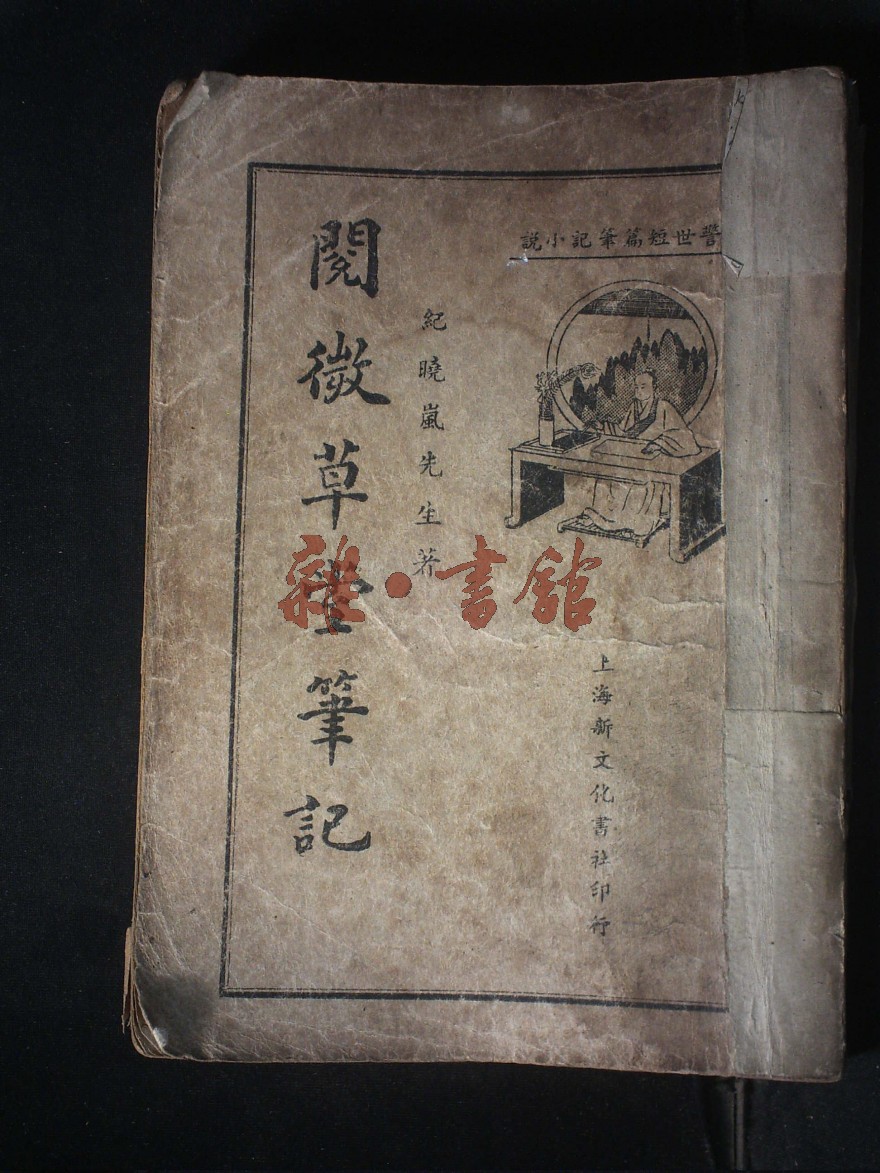 警世短篇筆記小說
上海新文化書社印行
紀曉嵐先生著
閱微草堂筆記
雜·書館